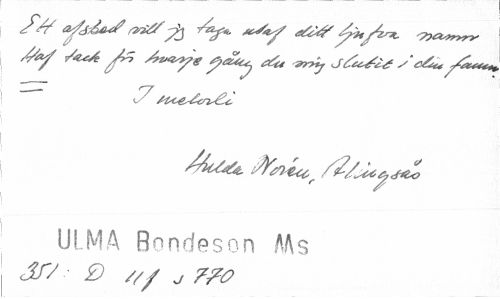 Ett afsked vill jg taga utaf ditt ljufva namn
Haf tack för hvarje gång du mig slutit i din famn.
I melodi
Hulda Norén, Alingsås
ULMA Bondeson Ms
351: D 11f s 770